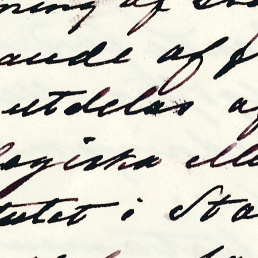 ning af
ande af f
utdelas af
logiska elle
tutet i Sto